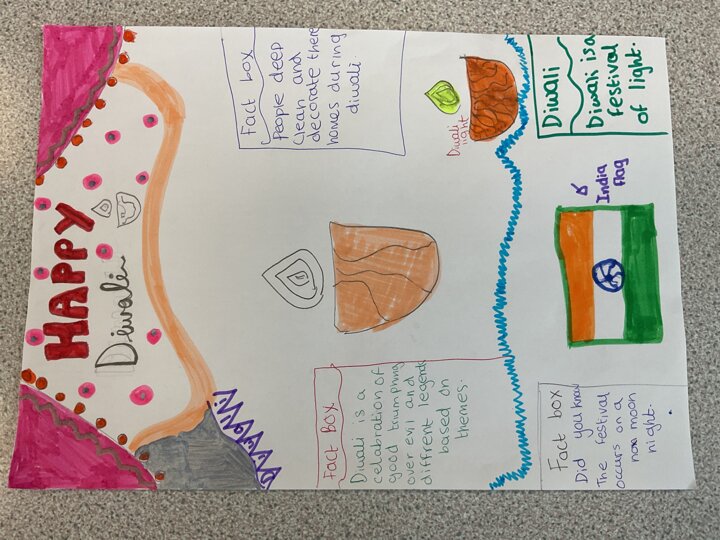 HAPPY
Diwali
Fact box
People deep
Clean and
decorate there
homes during
diwali
Fact Box
Diwali is a
celebration of
good triumphing
over evil and
different legends
based on
themes.
Diwali
light
Diwali
Diwali is a
festival
of light.
India
flag
Fact box
Did you know
The festival
occurs on a
moon
night.